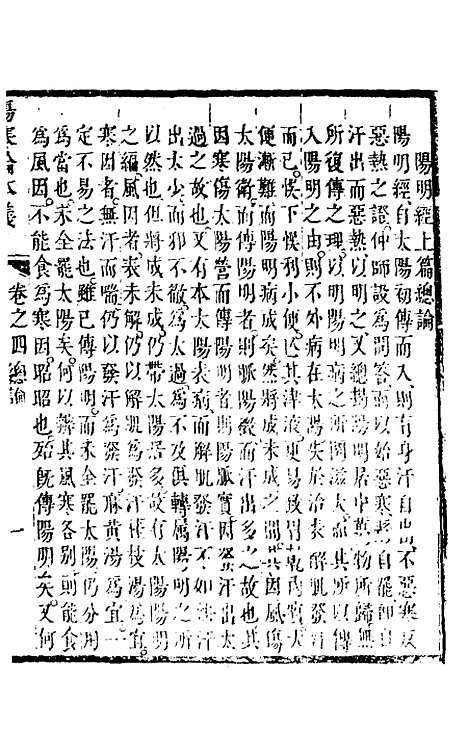 陽明經上篇總論
陽明經自太陽初傳而入則有身汗自出不惡寒反
惡熱之證仲師設為問答而以始惡寒旋自罷卽自
汗出而惡熱以明之又總揭陽明居中萬物所歸無
所復傳之理以明陽明病之所關滋大而其所以傳
入陽明之由則不外病在太陽失於治表解肌發汗
而已悞下悞利小便亡其津液更易致胃乾內實大
便漸難而陽明病成矣然將成未成之間其因風傷
太陽衛而傳陽明者則脈陽緩而汗出多之故也其
因寒傷太陽營而傳陽明者則陽脈實因發汗出太
過之故也又有本太陽表病而解肌發汗已不如法汗
出太少邪亦不徹為太過為不及俱轉屬陽明之所
以然也但將成未成仍帶太陽居多故有太陽陽明
之編風因者表未解仍以解肌為發汗桂枝湯為宜
寒因者無汗而喘仍以發汗為發汗麻黃湯為宜一
定不易之法也雖已傳陽明而未全罷太陽仍分用
為當也未全罷太陽矣何以辨其風寒各別則能食
為風因不能食為寒因昭昭也殆旣傳陽明矣又何
傷寒論本義
卷之四總論
一